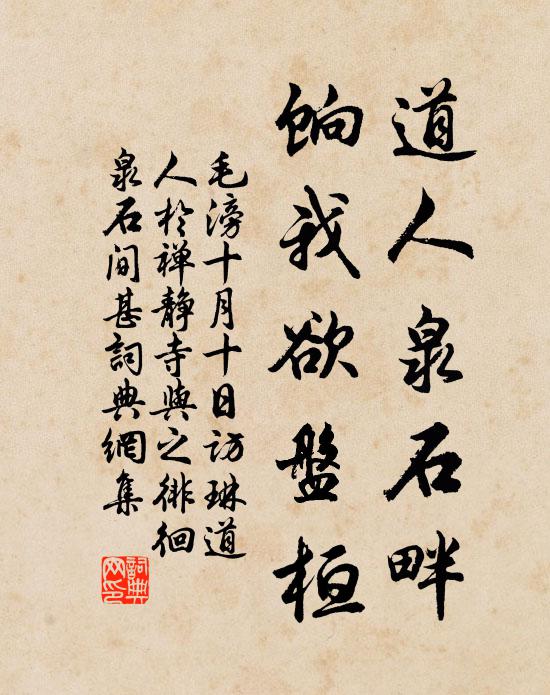 道人泉石畔
餉我欲盤桓
毛滂十月十日訪琳道
人於禅静寺與之徘徊
泉石间甚詞典網集
詞典
网印